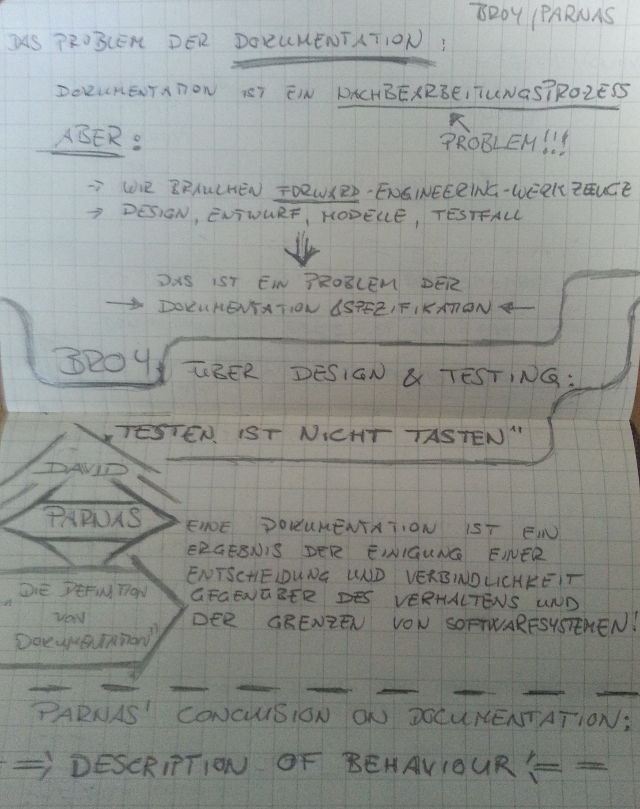 BROY/PARNAS
DAS PROBLEM DER DOKUMENTATION:
DOKUMENTATION IST EIN NACHBEARBEITUNGSPROZESS
ABER:
PROBLEM!!!
→ WIR BRAUCHEN FORWARD-ENGINEERING-WERKZEUGE
→ DESIGN, ENTWURF, MODELLE, TESTFALL
DAS IST EIN PROBLEM DER
→ DOKUMENTATION & SPEZIFIKATION ←
BROY, ÜBER DESIGN & TESTING:
„TESTEN IST NICHT TASTEN"
DAVID
PARNAS
EINE DOKUMENTATION IST EIN
ERGEBNIS DER EINIGUNG EINER
ENTSCHEIDUNG UND VERBINDLICHKEIT
GEGENÜBER DES VERHALTENS UND
DER GRENZEN VON SOFTWARESYSTEMEN!
„DIE DEFINITION
VON
DOKUMENTATION"
PARNAS' CONCLUSION ON DOCUMENTATION:
⇒ DESCRIPTION OF BEHAVIOUR! ⇐